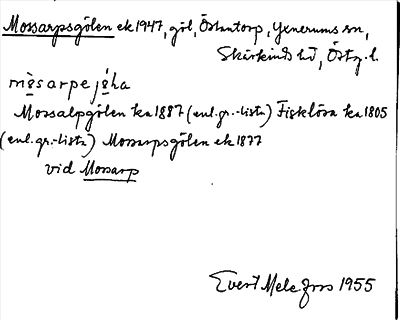 Mossarpsgölen ek 1947, göl, Östantorp, Yxnerums sn,
Skärkinds hd, Östg. l.
mòsarpe jø̀ha
Mossalpgölen ka 1887 (enl. gr.-lista) Fisklösa ka 1805
(enl. gr.-lista) Mossarpsgölen ek 1877
vid Mossarp
Evert Melefors 1955